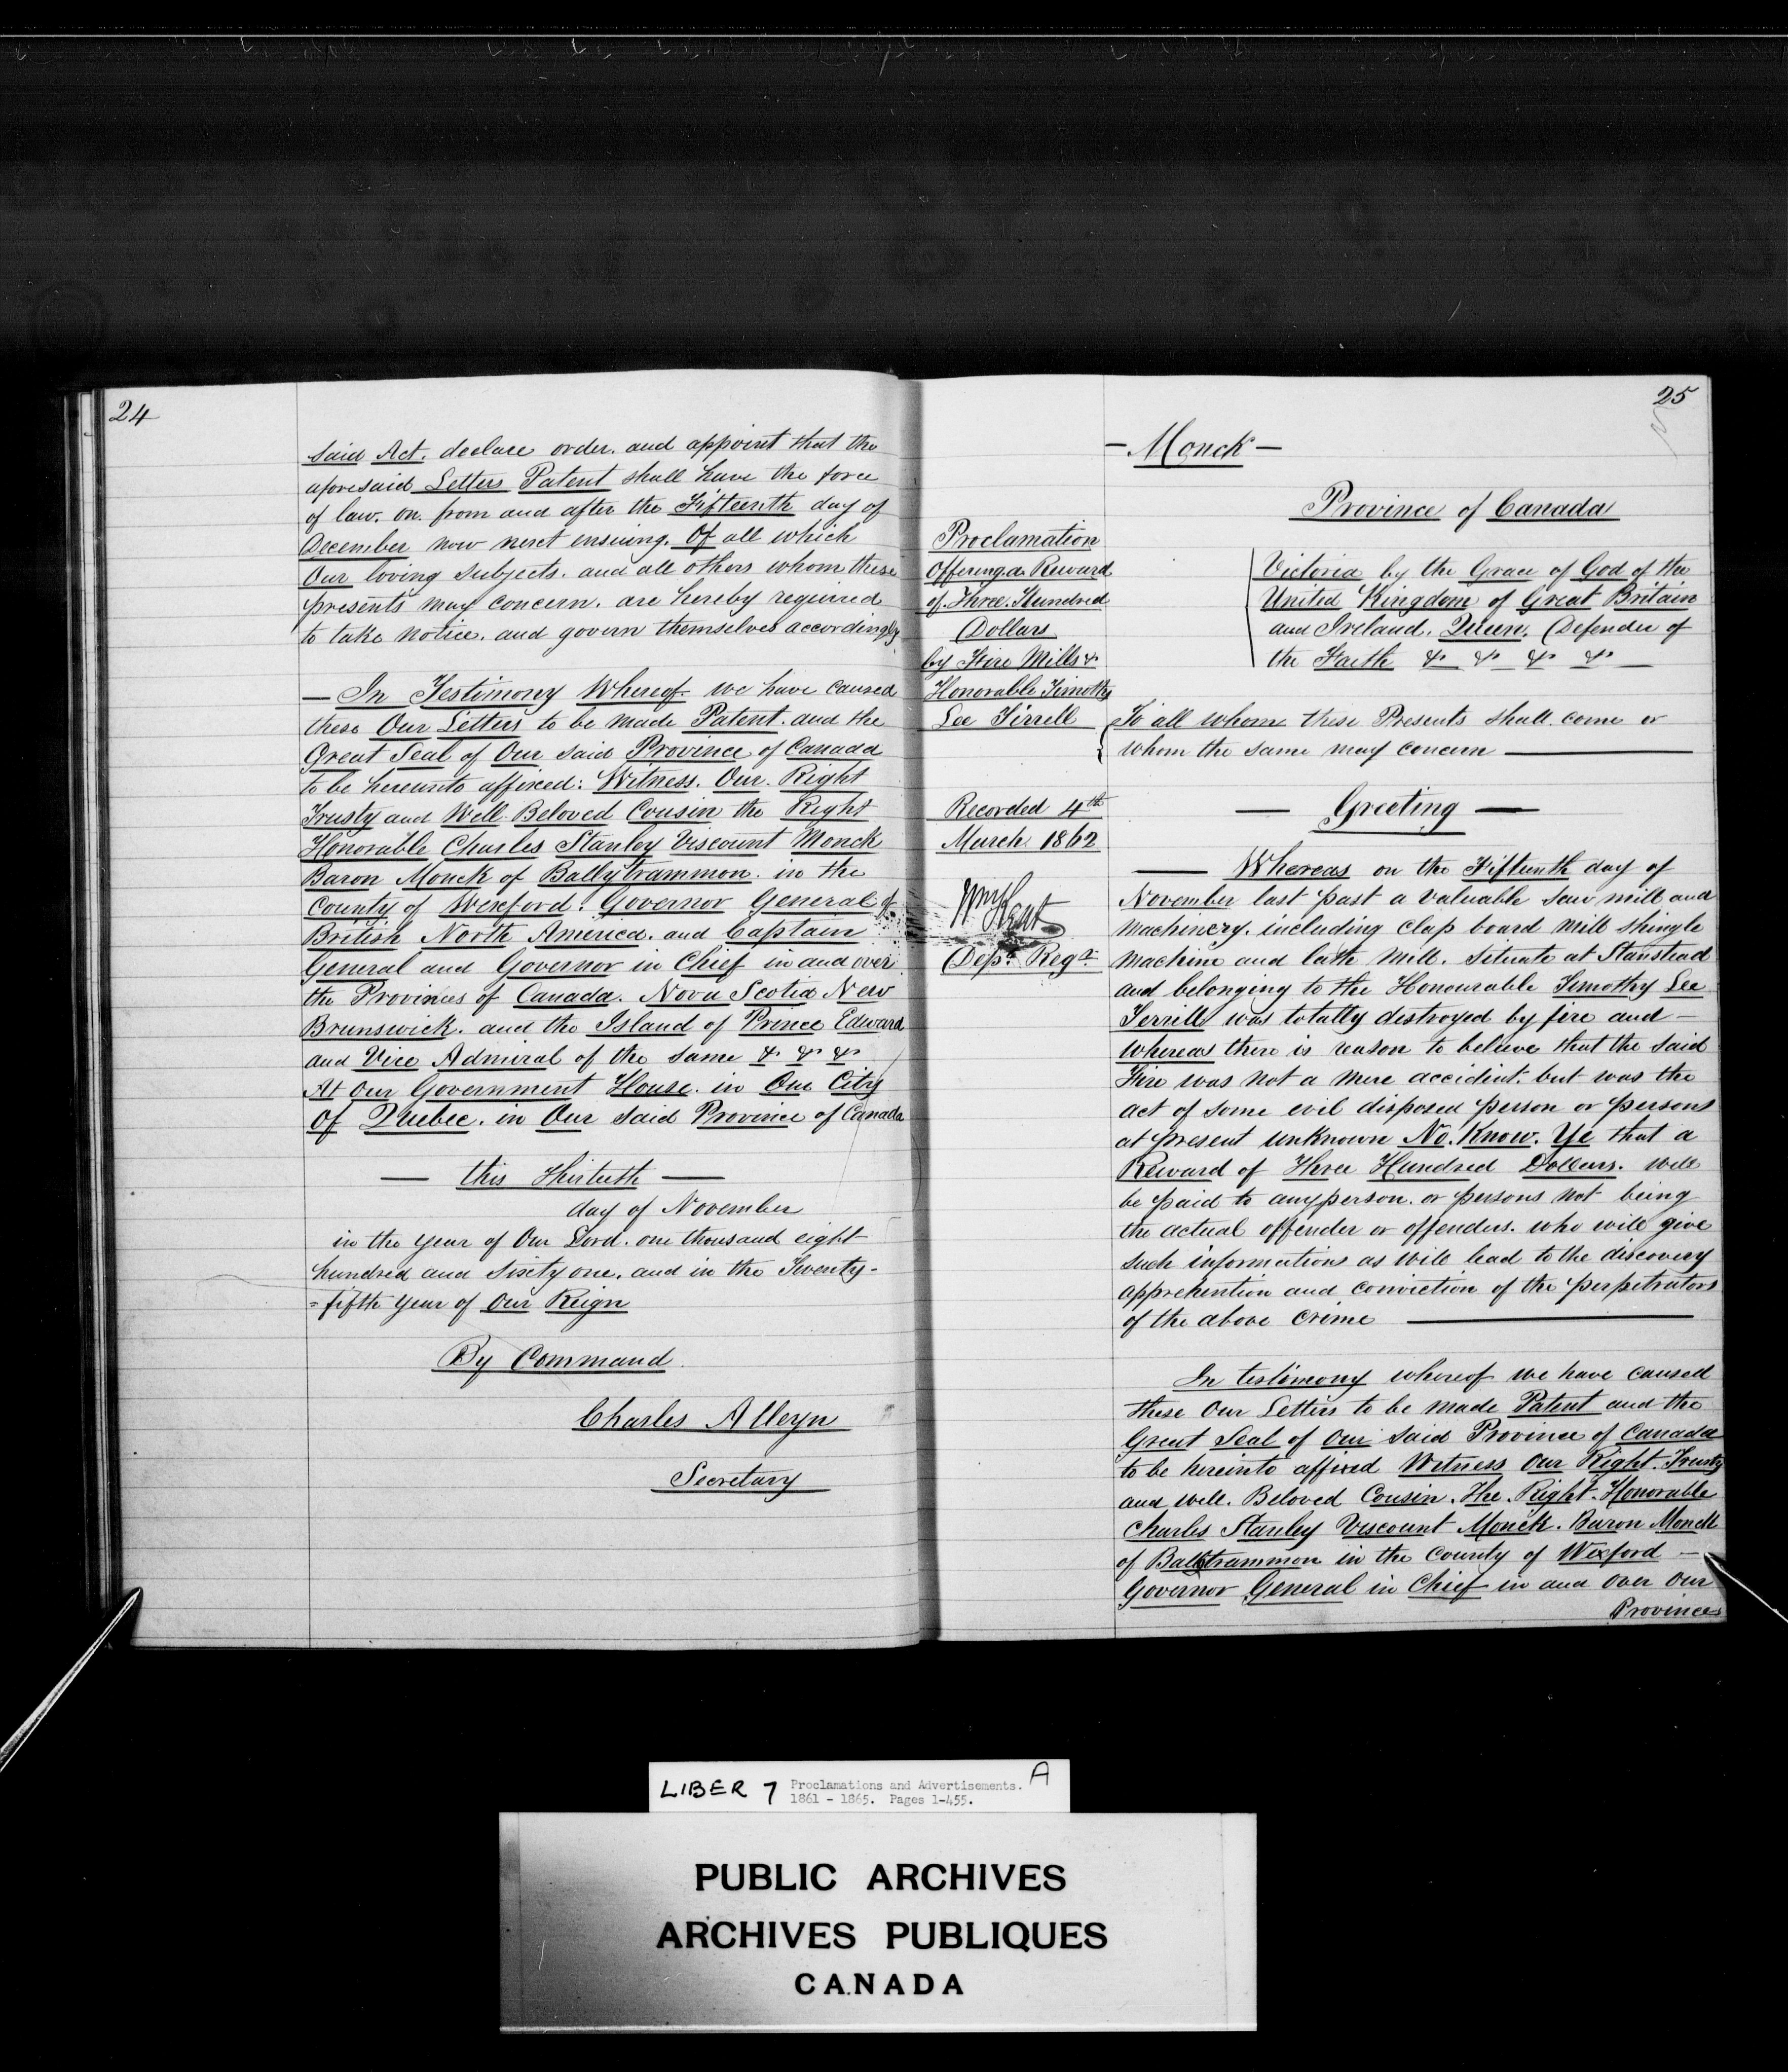 24
said Act. declare order. and appoint that the
aforesaid Letters Patent shall have the force
of law. on. from and after the Fifteenth day of
December now next ensuing. Of all which
Our loving Subjects. and all others whom these
presents may concern. are hereby required
to take notice. and govern themselves accordingly
— In Testimony Whereof we have caused
these Our Letters to be made Patent. and the
Great Seal of Our said Province of Canada
to be hereunto affixed: Witness. Our. Right
Trusty and Well Beloved Cousin the Right
Honorable Charles Stanley Viscount Monck
Baron Monck of Ballytrammon. in the
County of Wexford. Governor General of
British North America. and Captain
General and Governor in Chief in and over
the Provinces of Canada. Nova Scotia New
Brunswick. and the Island of Prince Edward
and Vice Admiral of the same &. &. &.
At Our Government House. in Our City
Of Quebec. in Our said Province of Canada
— this Thirtieth —
day of November
in the year of Our Lord. one thousand eight
hundred and Sixty one. and in the Twenty-
=fifth year of Our Reign
By Command
Charles Alleyn
Secretary
25
— Monck —
Province of Canada
Proclamation
Offering a Reward
of Three Hundred
Dollars
by Fire Mills &.
Honorable Timothy
Lee Tirrell
Recorded 4th
March 1862
Wm Kent
Depy. Regr.
Victoria by the Grace of God of the
United Kingdom of Great Britain
and Ireland. Queen. Defender of
the Faith &. &. &. &. —
To all whom these Presents shall come or
whom the same may concern —
— Greeting —
— Whereas on the Fifteenth day of
November last past a valuable saw mill and
machinery. including clap board mill shingle
machine and lath mill. situate at Stanstead
and belonging to the Honourable Timothy Lee
Terrill was totally destroyed by fire and —
whereas there is reason to believe that the said
Fire was not a mere accident. but was the
act of some evil disposed person or persons
at present unknown No. Know. Ye that a
Reward of Three Hundred Dollars. will
be paid to any person. or persons not being
the actual offender or offenders. who will give
such information as will lead to the discovery
apprehention and conviction of the perpetrators
of the above crime —
In testimony whereof we have caused
these Our Letters to be made Patent and the
Great Seal of Our said Province of Canada
to be hereinto affixed Witness Our Right. Trusty
and well. Beloved Cousin. The. Right. Honorable
Charles Stanley Viscount Monck. Baron Monck
of Ballytrammon in the County of Wexford —
Governor General in Chief in and over our
Provinces
LIBER 7 Proclamations and Advertisements. A
1861 - 1865. Pages 1-455.
PUBLIC ARCHIVES
ARCHIVES PUBLIQUES
CANADA